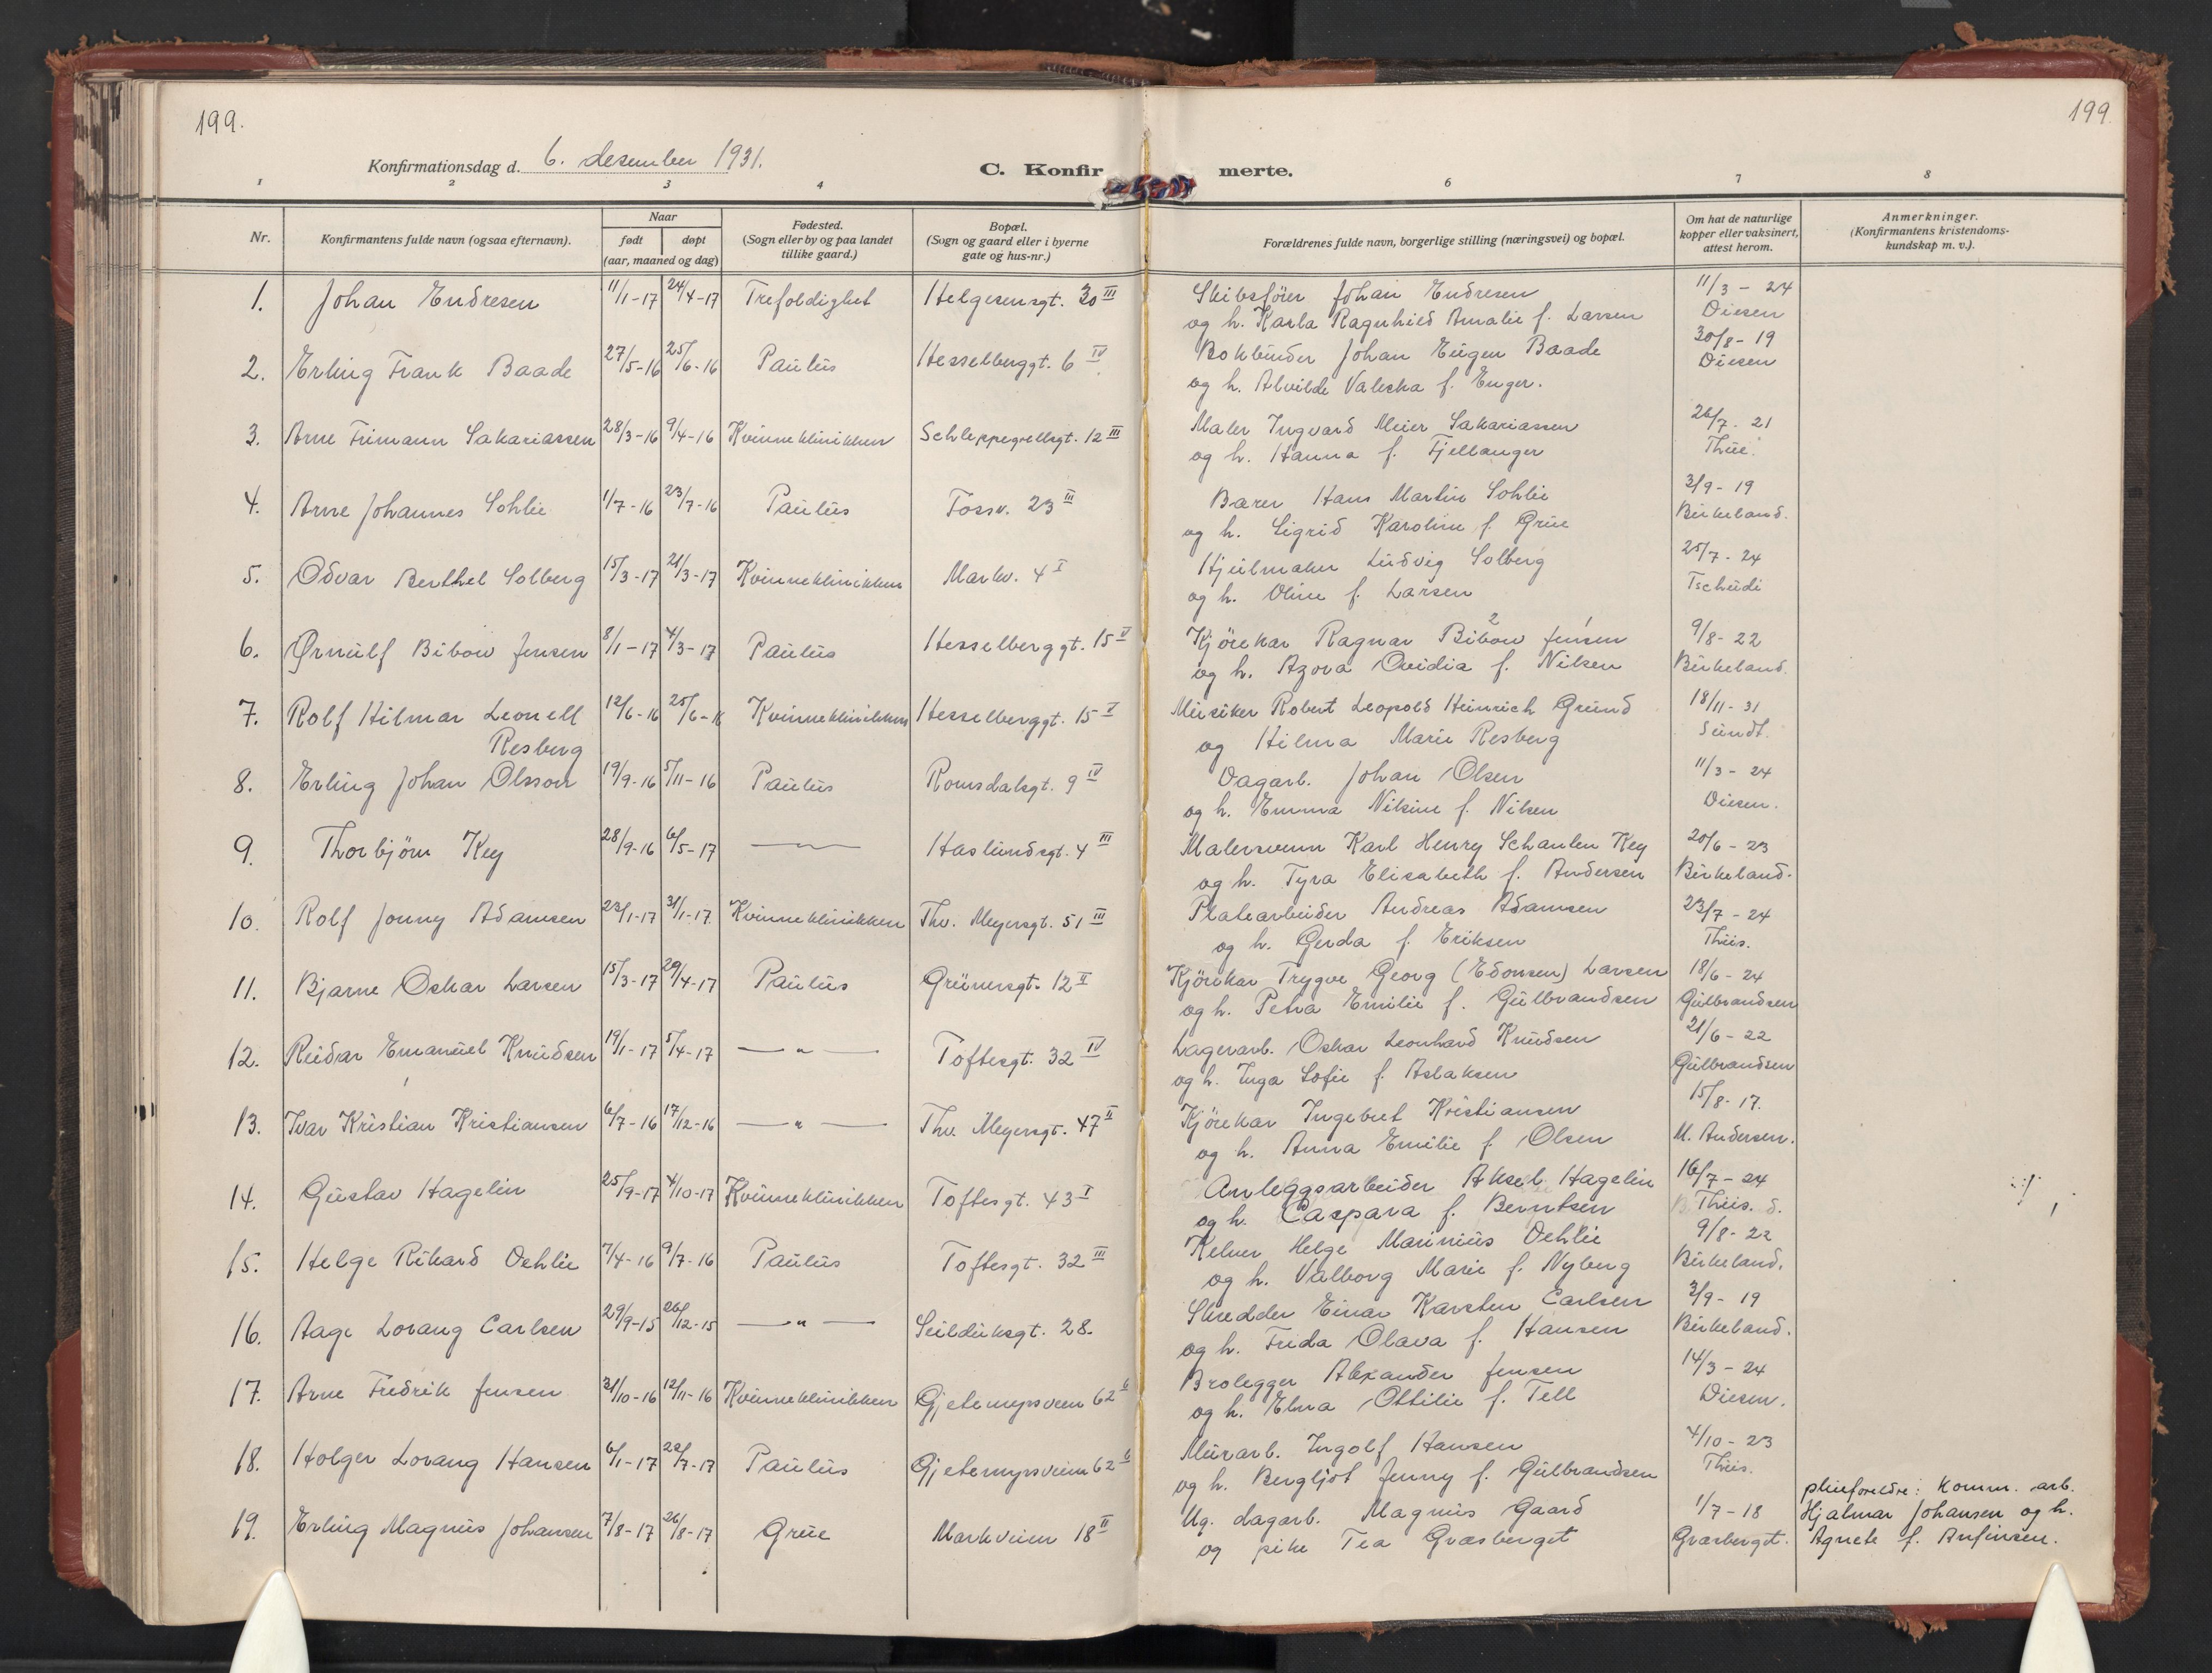 199.
199
Konfirmationsdag d. 6. desember 1931.
C. Konfir merte.
1 2 3 4 6 7 8
Nr.
Konfirmantens fulde navn (ogsaa efternavn).
Naar
født døpt
(aar, maaned og dag)
Fødested.
(Sogn eller by og paa landet
tillike gaard.)
Bopæl.
(Sogn og gaard eller i byerne
gate og hus-nr.)
Forældrenes fulde navn, borgerlige stilling (næringsvei) og bopæl.
Om hat de naturlige
kopper eller vaksinert,
attest herom.
Anmerkninger.
(Konfirmantens kristendoms-
kundskap m. v.).
1. Johan Endresen 11/1-17 24/4-17 Trefoldighet Helgesensgt. 30 III Skibsfører Johan Endresen 11/3 - 24
og h. Karla Ragnhild Amalie f. Larsen Diesen
2. Erling Frank Baade 27/5-16 25/6-16 Paulus Hesselberggt. 6 IV Bokbinder Johan Eugen Baade 30/8-19
og h. Alvilde Valeska f. Enger. Diesen
3. Arne Frimann Sakariassen 28/3-16 9/4-16 Kvinneklinikken Schleppegrellsgt. 12 III Maler Ingvard Meier Sakariassen 26/7-21
og h. Hanna f. Fjellanger
4. Arne Johannes Sohlie 1/7-16 23/7-16 Paulus Fossv. 23 III Barer Hans Martin Sohlie 3/9-19
og h. Sigrid Karoline f. Grue Birkeland.
5. Odvar Berthel Solberg 15/3-17 21/3-17 Kvinneklinikken Markv. 4 I Hjulmaker Ludvig Solberg 25/7-24
og h. Oline f. Larsen Tschudi
6. Ørnulf Bibow Jensen 8/1-17 4/3-17 Paulus Hesselberggt. 15 V Kjørekar Ragnar Bibow Jensen 9/8-22
og h. Azora Ovidia f. Nilsen Birkeland.
7. Rolf Hilmar Leonell 12/6-16 25/6-16 Kvinneklinikken Hesselberggt. 15 V Musiker Robert Leopold Heinrich Grund 18/11-31
Resberg og Hilma Marie Resberg Sundt.
8. Erling Johan Olsson 19/9-16 5/11-16 Paulus Romsdalsgt. 9 IV Dagarb. Johan Olsen 11/3-24
og h. Emma Nikine f. Nilsen Diesen.
9. Thorbjörn Key 28/9-16 6/5-17 — " — Haslundsgt. 4 III Malersvenn Karl Henry Schanten Key 20/6-23
og h. Tyra Elisabeth f. Andersen Birkeland.
10. Rolf Jonny Adamsen 23/1-17 31/1-17 Kvinneklinikken Thv. Meyersgt. 51 III Platearbeider Andreas Adamsen 23/7-24
og h. Gerda f. Eriksen Thiis.
11. Bjarne Oskar Larsen 15/3-17 29/4-17 Paulus Grünersgt. 12 II Kjörekar Trygve Georg (Edonsen) Larsen 18/6-24
og h. Petra Emilie f. Gulbrandsen Gulbrandsen
12. Reidar Emanuel Knudsen 19/1-17 5/4-17 — " — Toftesgt. 32 IV Lagerarb. Oskar Leonhard Knudsen 21/6-22
og h. Inga Sofie f. Aslaksen Gulbrandsen
13. Ivar Kristian Kristiansen 6/7-16 17/12-16 — " — Thv. Meyersgt. 47 II Kjörekar Ingebret Kristiansen 15/8-17.
og h. Anna Emilie f. Olsen M. Andersen.
14. Gustav Hagelin 25/9-17 4/10-17 Kvinneklinikken Toftesgt. 43 I Anleggsarbeider Aksel Hagelin 16/7-24
og h. Caspara f. Berntsen Thiis.
15. Helge Rikard Oehlie 7/4-16 9/7-16 Paulus Toftesgt. 32 III Kelner Helge Marinius Oehlie 9/8-22
og h. Valborg Marie f. Nyberg Birkeland.
16. Aage Lorang Carlsen 29/9-15 26/12-15 — " — Seilduksgt. 28. Skredder Einar Karsten Carlsen 3/9-19
og h. Frida Olava f. Hansen Birkeland.
17. Arne Fredrik Jensen 31/10-16 12/11-16 Kvinneklinikken Gjetemyrsveien 62 Brolegger Alexander Jensen 14/3-24
og h. Elna Ottilie f. Tell Diesen.
18. Holger Lorang Hansen 6/1-17 22/7-17 Paulus Gjetemyrsveien 62 Murarb. Ingolf Hansen 4/10-23
og h. Bergljot Jenny f. Gulbrandsen Thiis.
19. Erling Magnus Johansen 7/8-17 26/8-17 Grue Markveien 18 II Ug. dagarb. Magnus Gaard 1/7-18
og pike Tea Græsberget Græsberget.
pleieforeldre: komm. arb.
Hjalmar Johansen og h.
Agnete f. Anfinsen.